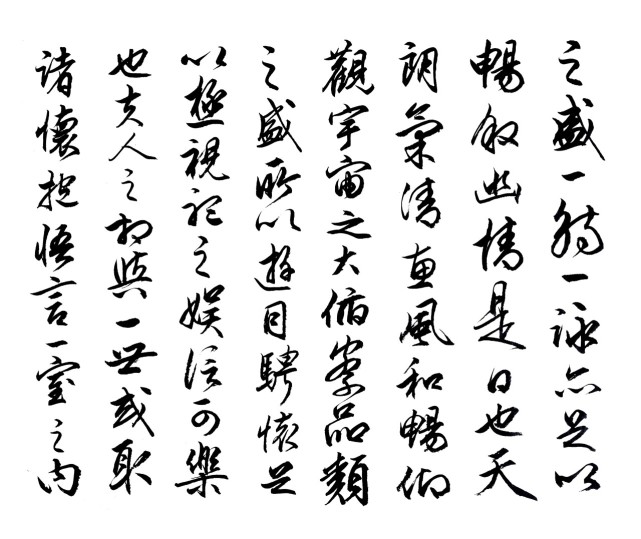 之盛一觴一詠亦足以
暢敘幽情是日也天
朗氣清惠風和暢仰
觀宇宙之大俯察品類
之盛所以遊目騁懷足
以極視聽之娛信可樂
也夫人之相與一世或取
諸懷抱悟言一室之內